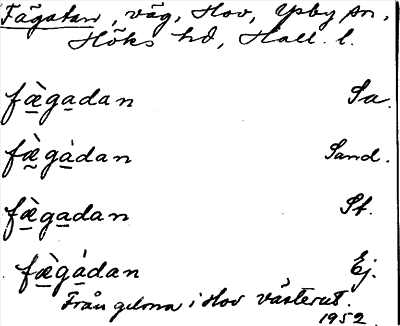 Fägatan, väg, Hov, Ysby sn,
Höks hd, Hall. l.
fæ̀gadan Sa.
fæ̀gàdan Sand.
fæ̀gadan St.
fæ̀gàdan Ej.
Från gdna i Hov västerut.
1952